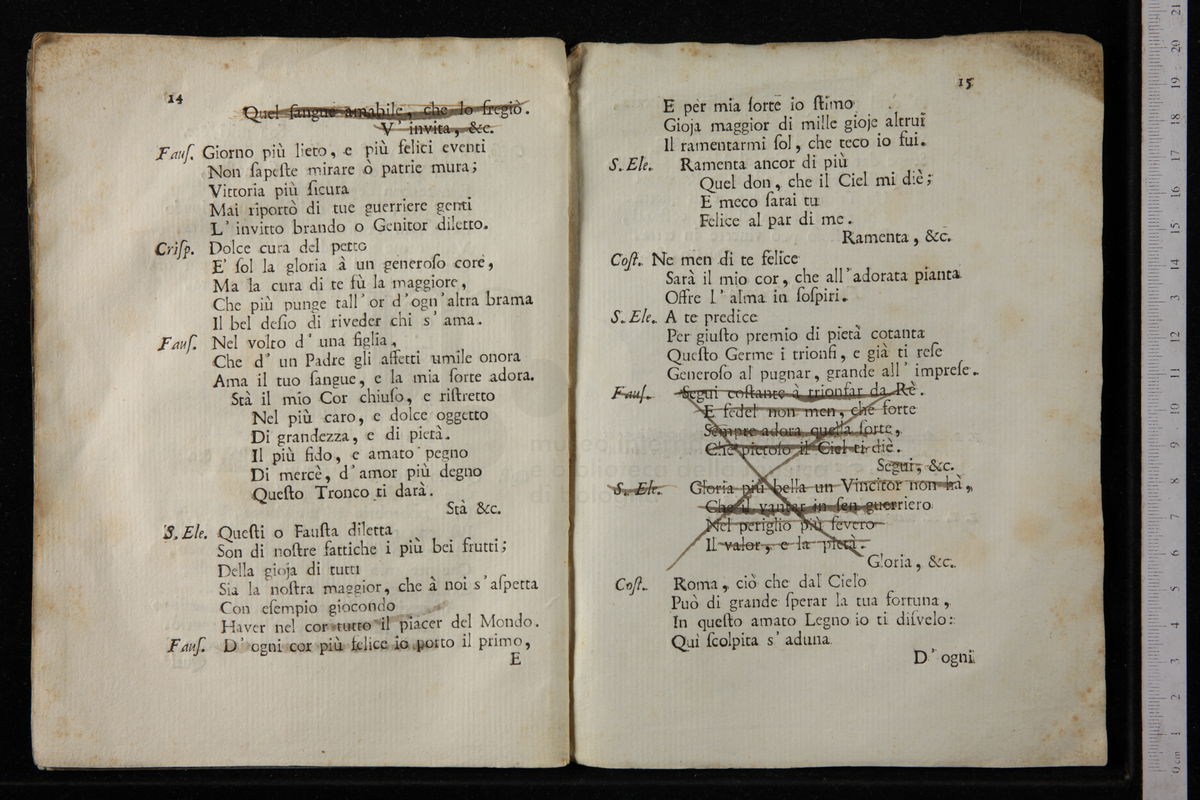 14
Quel ſangue amabile, che lo fregiò.
V' invita, &c.
Fauſ. Giorno più lieto, e più felici eventi
Non ſapeſte mirare ò patrie mura;
Vittoria più ſicura
Mai riportò di tue guerriere genti
L' invitto brando o Genitor diletto.
Criſp. Dolce cura del petto
E' ſol la gloria à un generoſo core,
Ma la cura di te fù la maggiore,
Che più punge tall' or d' ogn' altra brama
Il bel deſio di riveder chi s' ama.
Fauſ. Nel volto d' una figlia,
Che d' un Padre gli affetti umile onora
Ama il tuo ſangue, e la mia ſorte adora.
Stà il mio Cor chiuſo, e riſtretto
Nel più caro, e dolce oggetto
Di grandezza, e di pietà.
Il più fido, e amato pegno
Di mercè, d' amor più degno
Queſto Tronco ti darà.
Stà &c.
S. Ele. Queſti o Fauſta diletta
Son di noſtre fattiche i più bei frutti;
Della gioja di tutti
Sia la noſtra maggior, che à noi s' aſpetta
Con eſempio giocondo
Haver nel cor tutto il piacer del Mondo.
Fauſ. D' ogni cor più felice io porto il primo,
E
15
E per mia ſorte io ſtimo
Gioja maggior di mille gioje altrui
Il ramentarmi ſol, che teco io fui.
S. Ele. Ramenta ancor di più
Quel don, che il Ciel mi diè;
E meco ſarai tu
Felice al par di me.
Ramenta, &c.
Coſt. Ne men di te felice
Sarà il mio cor, che all' adorata pianta
Offre l' alma in ſoſpiri.
S. Ele. A te predice
Per giuſto premio di pietà cotanta
Queſto Germe i trionfi, e già ti reſe
Generoſo al pugnar, grande all' impreſe.
Fauſ. Segui coſtante à trionfar da Rè.
E fedel non men, che forte
Sempre adora quella ſorte,
Che pietoſo il Ciel ti diè.
Segui, &c.
S. Ele. Gloria più bella un Vincitor non hà,
Che il vantar in ſen guerriero
Nel periglio più ſevero
Il valor, e la pietà.
Gloria, &c.
Coſt. Roma, ciò che dal Cielo
Può di grande ſperar la tua fortuna,
In queſto amato Legno io ti diſvelo:
Quì ſcolpita s' aduna
D' ogni